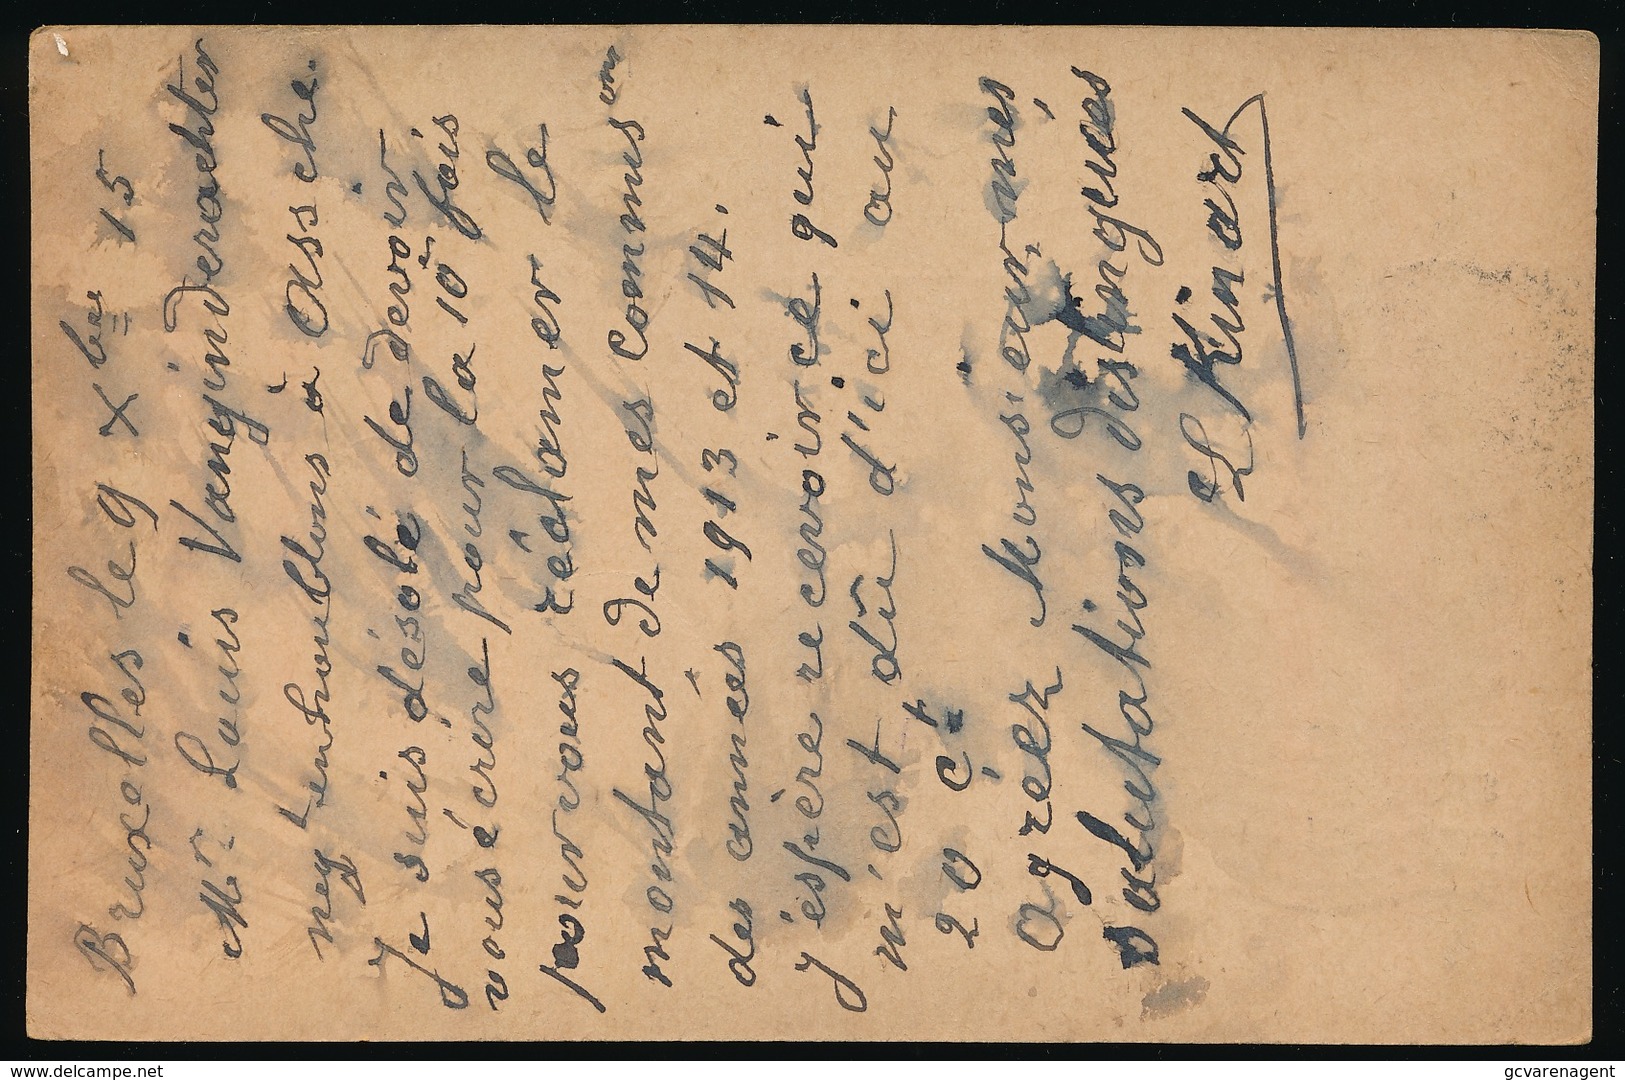 Bruxelles le 9 Xbre 15
Mr Louis Vanginderachter
negt en houblons à Assche.
Je suis désolé de devoir
vous écrire pour la 10e fois
pour vous réclamer le
montant de mes commusons
des années 1913 et 14.
J'éspère recevoir ce qui
m'est dû d'ici au
20 ct
Agréez Monsieur, mes
salutations distinguées
L Kinart
Te koop op www.delcampe.net
gcvarenagent